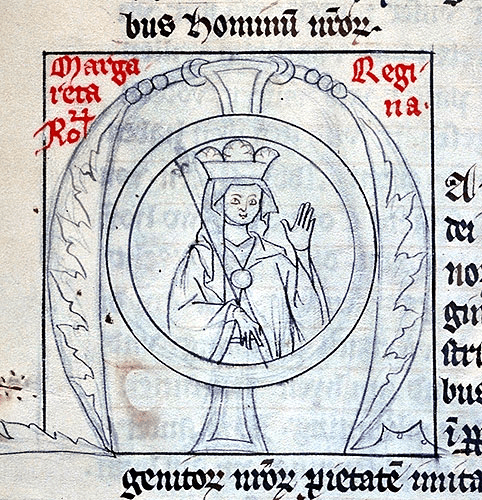 bus hominū nr̄oꝝ.
Marga
reta
Roꝝ
Regi
na.
A
dei
nor
gin
stri
bus
genitoꝝ nr̄oꝝ pietatē imita